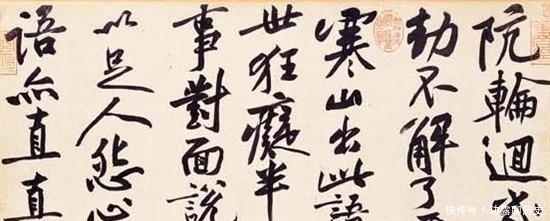 阬輪迴
劫不解了
寒山出此語
世狂癡半
事對面說
以足人怨心
語亦直直
快传号